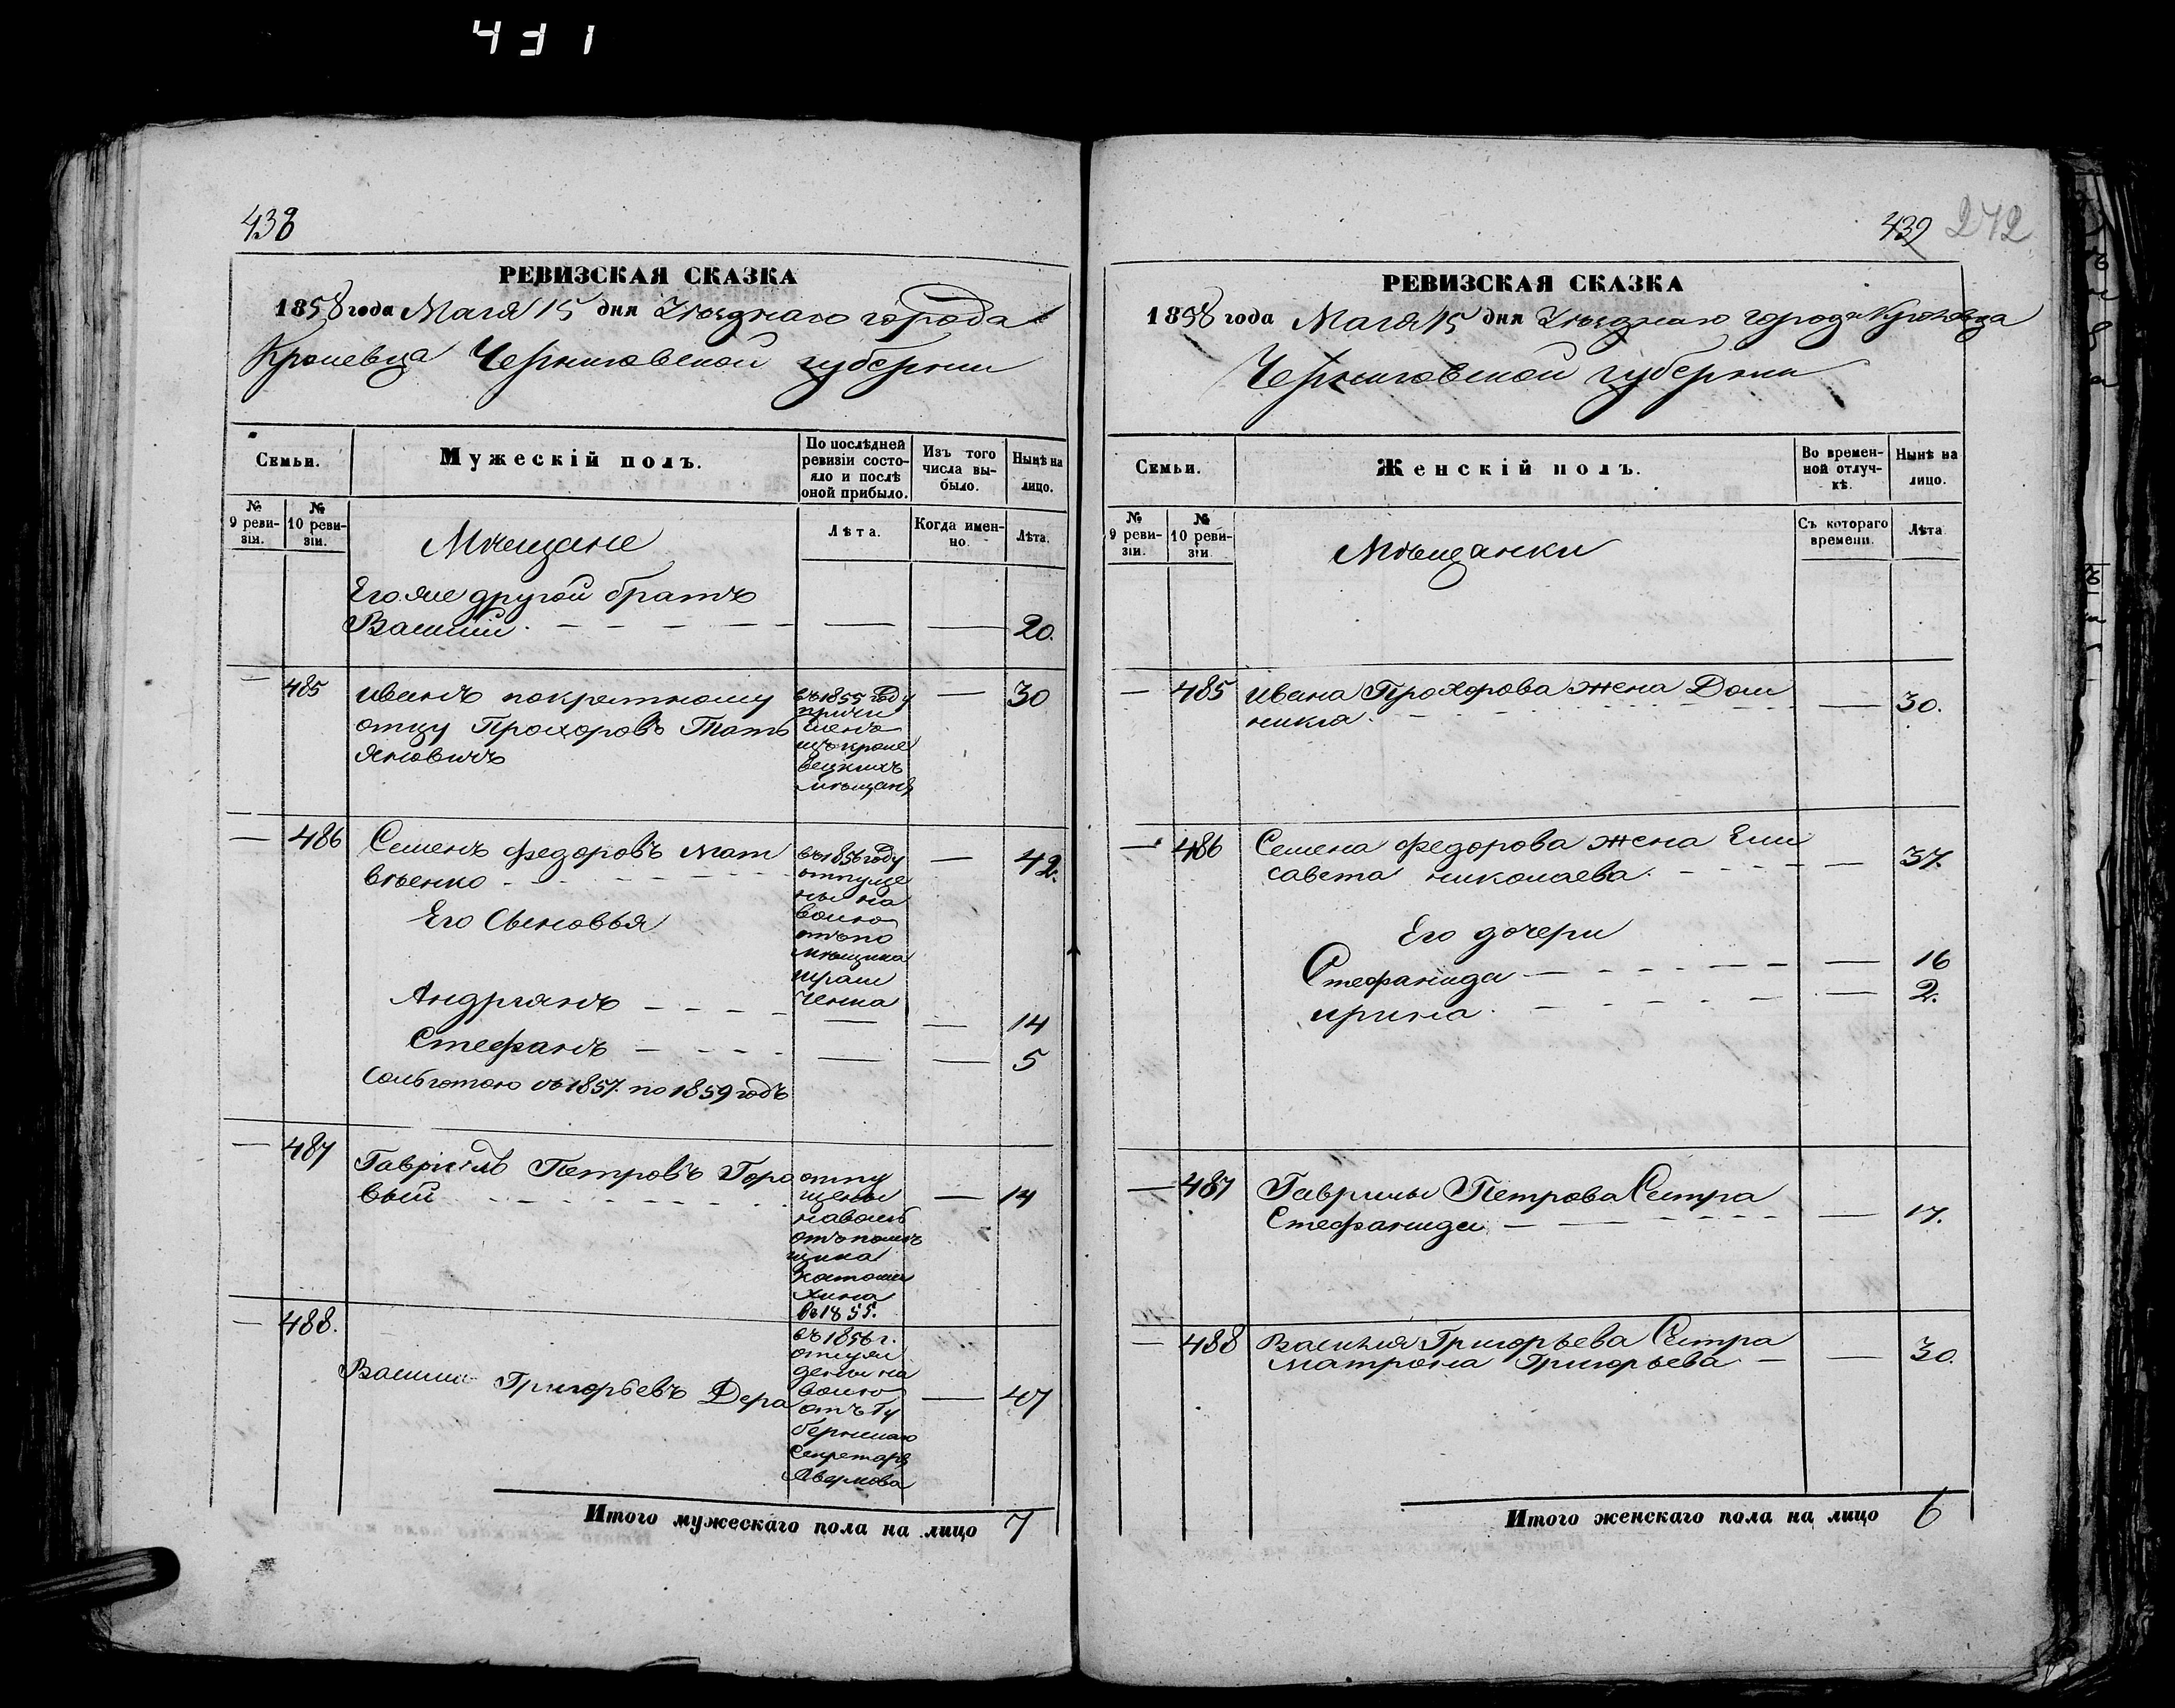 431
438
РЕВИЗСКАЯ СКАЗКА
1858 года Маія 15 дня Уѣзднаго города
Кролевца Черниговской губерніи
Семьи.
Мужескій полъ.
По послѣдней ревизіи состояло и послѣ оной прибыло.
Изъ того числа выбыло.
Нынѣ на лицо.
№ 9 ревизіи.
№ 10 ревизіи.
Лѣта.
Когда именно.
Лѣта.
Мѣщане
Его же другой братъ
Василій 20.
— 485 Иванъ по крестному — 30
отцу Прохоровъ
въ 1855 году
причи
сленъ
кроле
вецкихъ
мѣщанъ
— 486 Семенъ Федоровъ Мат — 42.
вѣенко
въ 1856 году
отпуще
ны на
волю
отъ по
мѣщика
Его Сыновья
Андріянъ — 14
Стефанъ — 5
Со льготою съ 1857. по 1859 годъ
— 487 Гавріилъ Петровъ Горо — 14
вый
отпу
щены
на волю
отъ помѣ
щика
въ 1855.
— 488. Василій Григорьевъ Дера — 47
въ 1856 г.
волю
отъ Гу
бернскаго
Секретаря
Итого мужескаго пола на лицо 7
439 272
РЕВИЗСКАЯ СКАЗКА
1858 года Маія 15 дня Уѣзднаго города Кролевца
Черниговской губерніи
Семьи.
Женскій полъ.
Во временной отлучкѣ.
Нынѣ на лицо.
№ 9 ревизіи.
№ 10 ревизіи
Съ котораго времени.
Лѣта
Мѣщанки
— 485 Ивана Прохорова жена Дом — 30.
никія
— 486 Семена Федорова жена Ели — 37.
савета Николаева
Его дочери
Стефанида — 16
Ирина — 2.
— 487 Гаврилы Петрова Сестра
Стефанида — 17.
— 488 Василія Григорьева Сестра
Матрона Григорьева — 30.
Итого женскаго пола на лицо 6